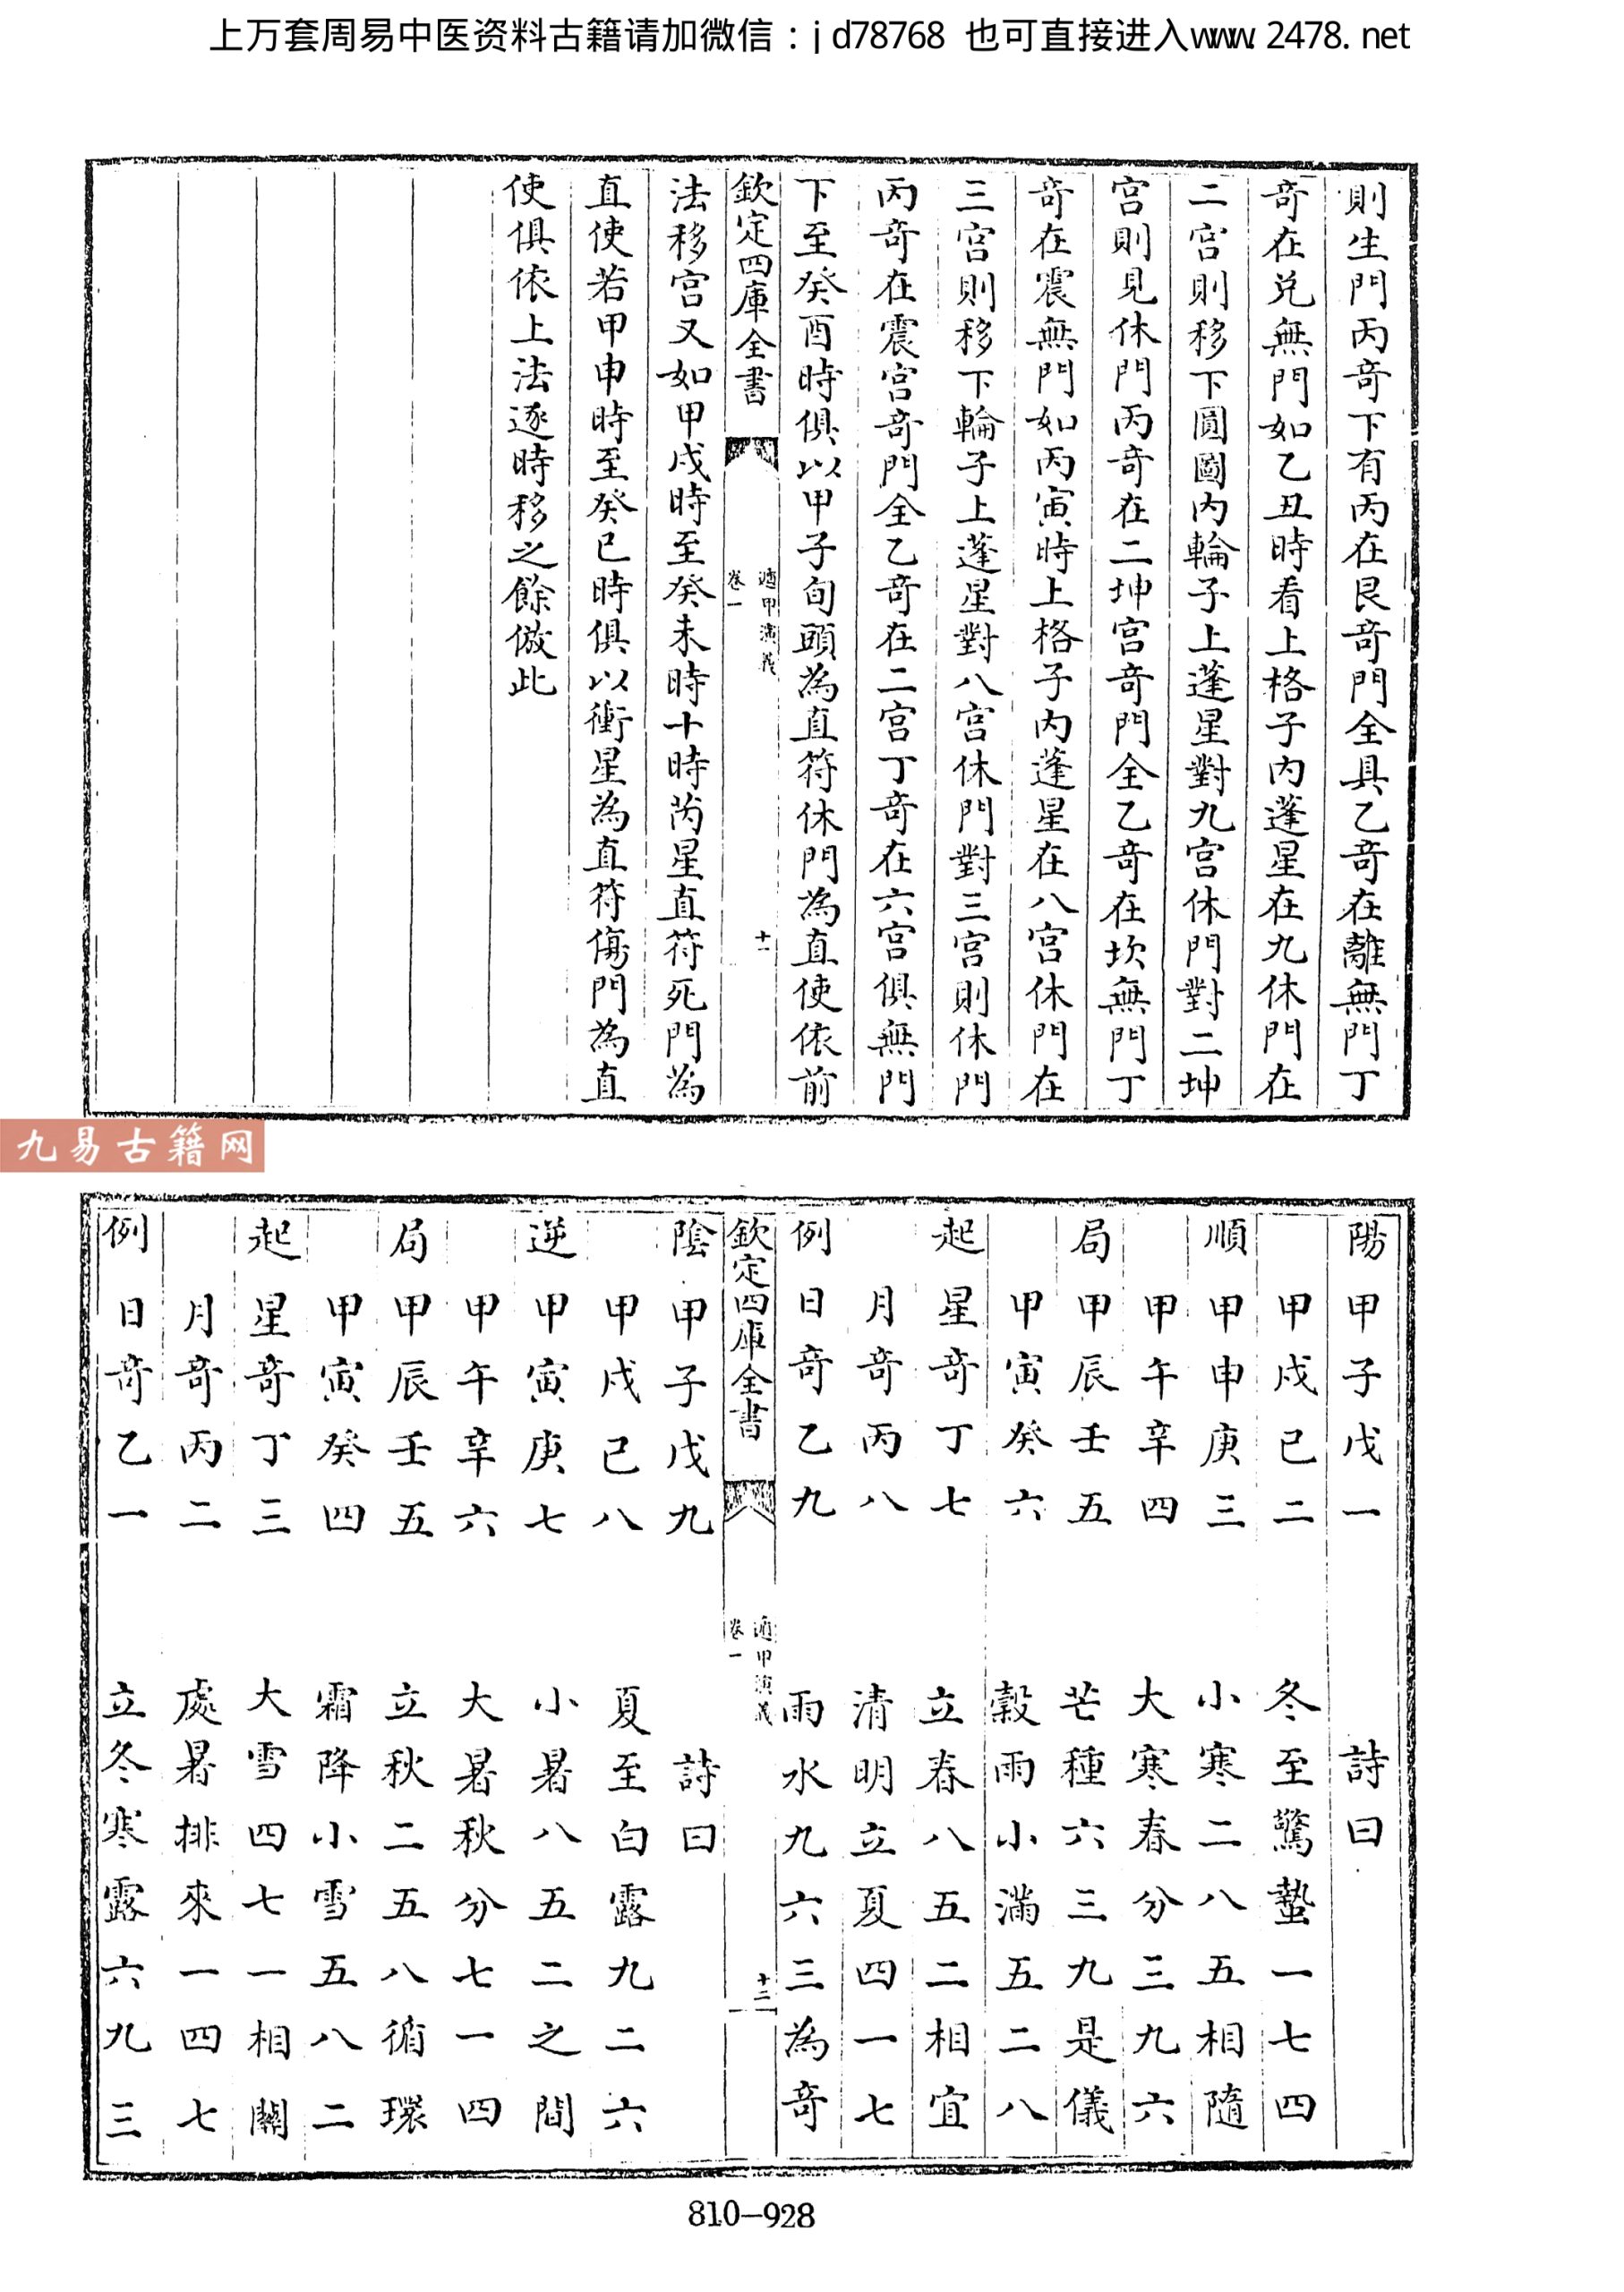 上万套周易中医资料古籍请加微信：jd78768 也可直接进入www.2478.net
則生門丙奇下有丙在艮奇門全具乙奇在離無門丁
奇在兌無門如乙丑時看上格子內蓬星在九休門在
二宮則移下圓圖內輪子上蓬星對九宮休門對二坤
宮則見休門丙奇在二坤宮奇門全乙奇在坎無門丁
奇在震無門如丙寅時上格子內蓬星在八宮休門在
三宮則移下輪子上蓬星對八宮休門對三宮則休門
丙奇在震宮奇門全乙奇在二宮丁奇在六宮俱無門
下至癸酉時俱以甲子旬頭為直符休門為直使依前
欽定四庫全書
遁甲演義
卷一
十一
法移宮又如甲戌時至癸未時十時芮星直符死門為
直使若甲申時至癸巳時俱以衝星為直符傷門為直
使俱依上法逐時移之餘倣此
九易古籍网
陽 甲子戊一 詩曰
甲戌己二 冬至驚蟄一七四
順 甲申庚三 小寒二八五相隨
甲午辛四 大寒春分三九六
局 甲辰壬五 芒種六三九是儀
甲寅癸六 穀雨小滿五二八
起 星奇丁七 立春八五二相宜
月奇丙八 清明立夏四一七
例 日奇乙九 雨水九六三為奇
欽定四庫全書
遁甲演義
卷一
十二
陰 甲子戊九 詩曰
甲戌己八 夏至白露九二六
逆 甲寅庚七 小暑八五二之間
甲午辛六 大暑秋分七一四
局 甲辰壬五 立秋二五八循環
甲寅癸四 霜降小雪五八二
起 星奇丁三 大雪四七一相關
月奇丙二 處暑排來一四七
例 日奇乙一 立冬寒露六九三
810-928